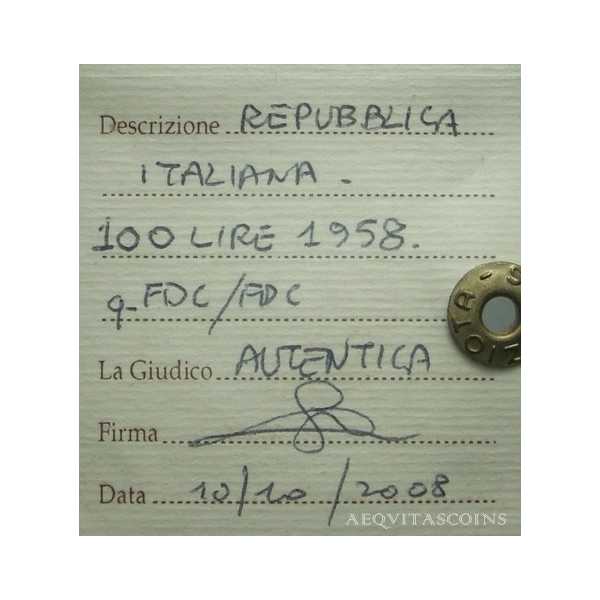 Descrizione REPUBBLICA
ITALIANA.
100 LIRE 1958.
q. FDC/FDC
La Giudico AUTENTICA
Firma
Data 10/10/2008
AEQVITASCOINS